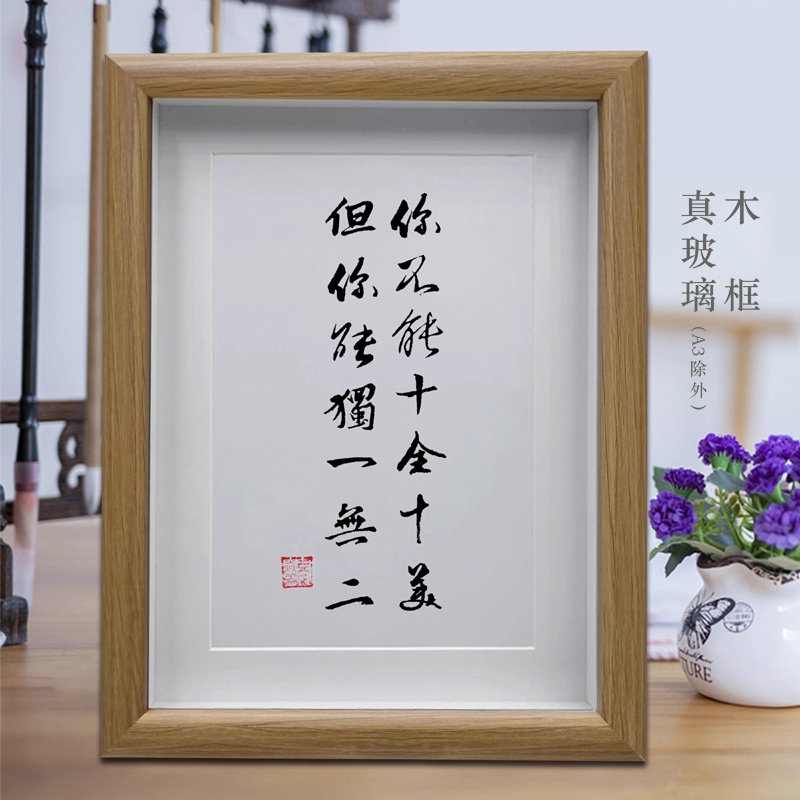 你不能十全十美
但你能獨一無二
木框
真玻璃(A3除外)
TURE